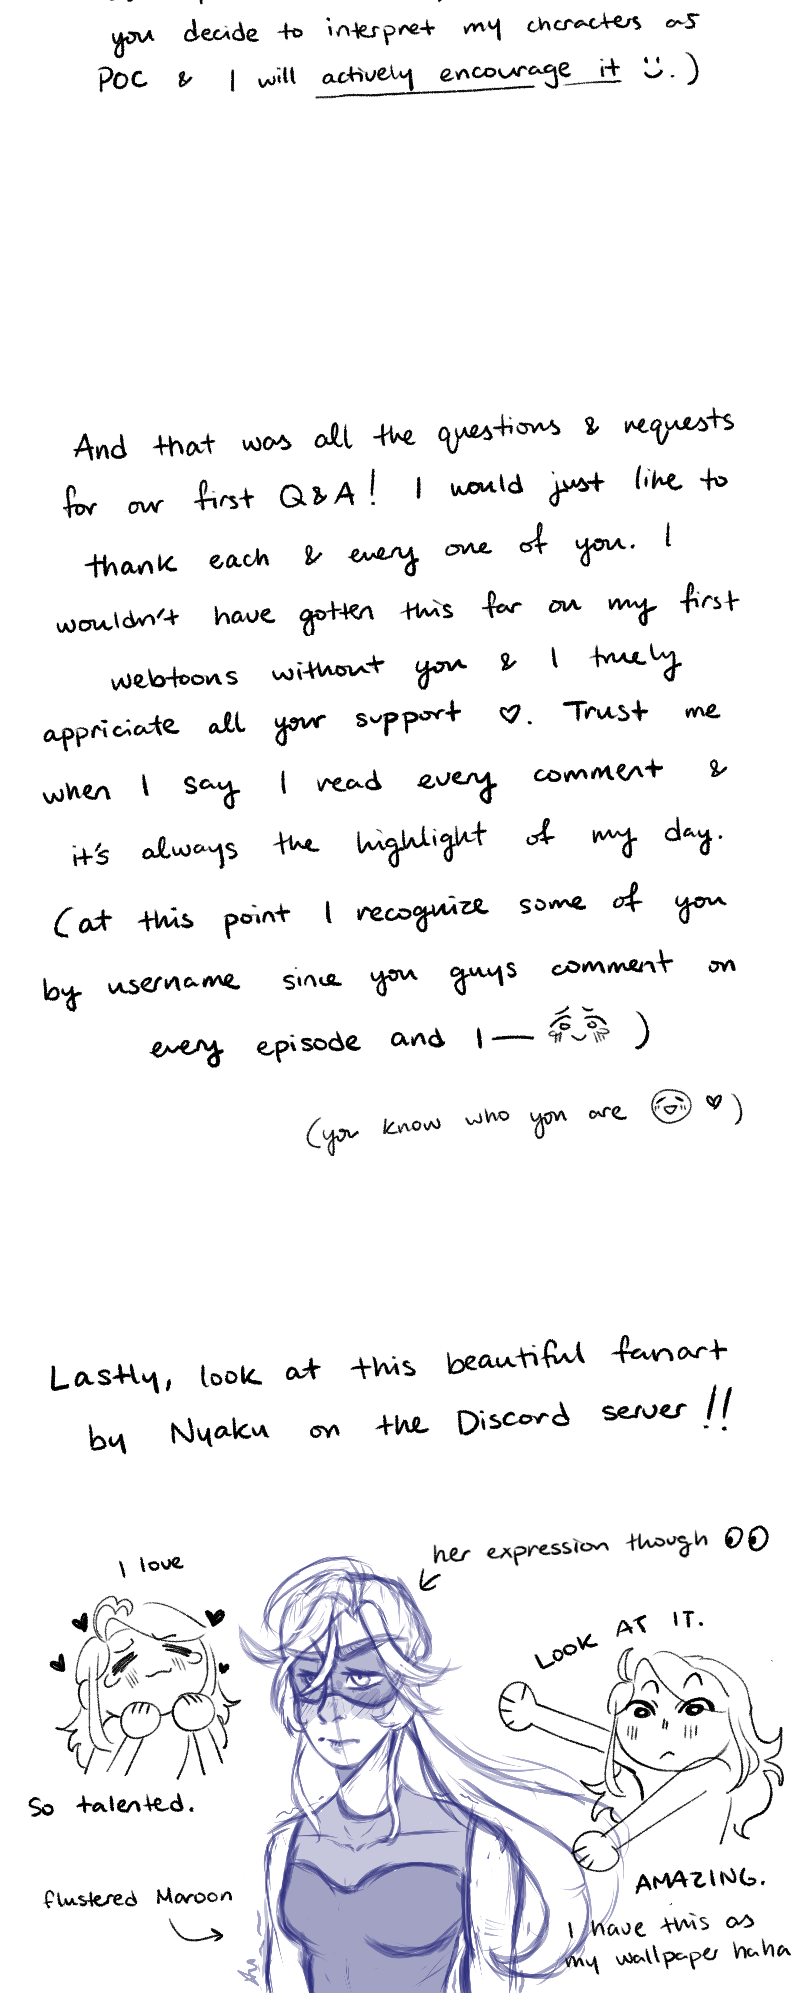 you decide to interpret my characters as
POC & I will actively encourage it Ü.)
And that was all the questions & requests
for our first Q&A! I would just like to
thank each & every one of you. I
wouldn't have gotten this far on my first
webtoons without you & I truely
appriciate all your support ♡. Trust me
when I say I read every comment &
it's always the highlight of my day.
(at this point I recognize some of you
by username since you guys comment on
every episode and I— )
(you know who you are ♡)
Lastly, look at this beautiful fanart
by Nyaku on the Discord server!!
her expression though
I love
LOOK AT IT.
So talented.
AMAZING.
flustered Maroon
I have this as
my wallpaper haha